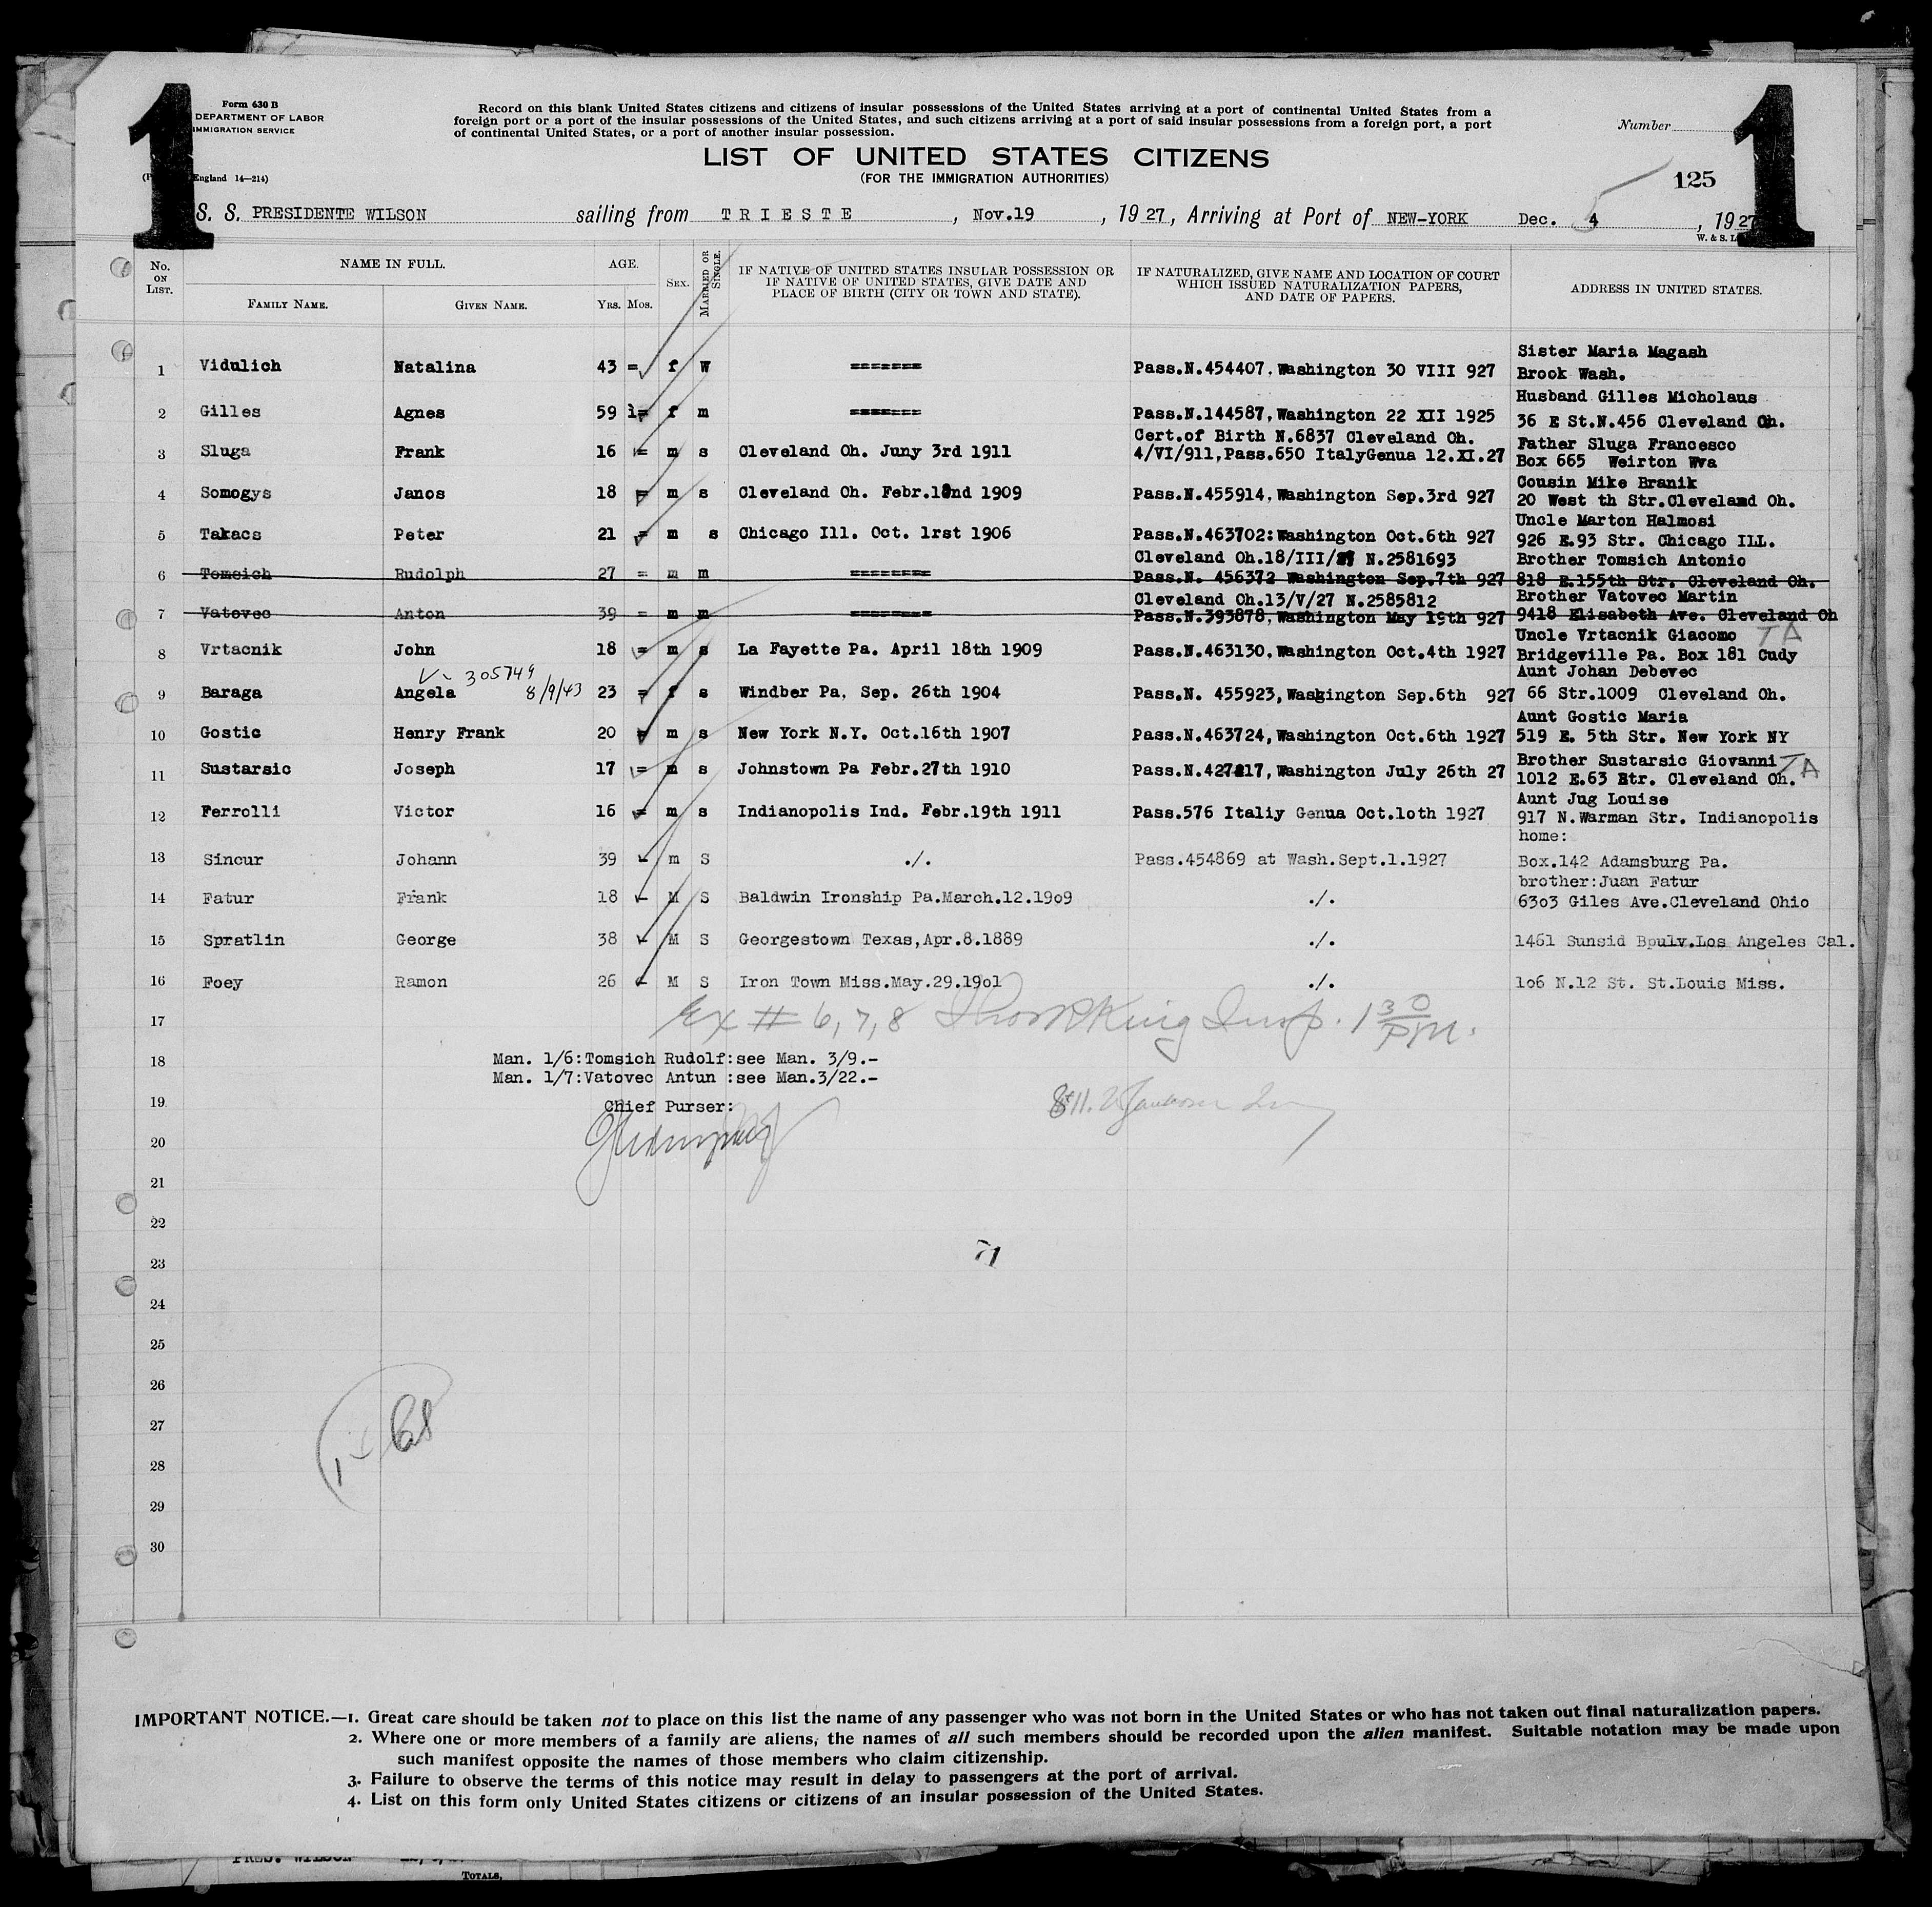 1
1
Form 630 B
DEPARTMENT OF LABOR
IMMIGRATION SERVICE
England 14—214)
Record on this blank United States citizens and citizens of insular possessions of the United States arriving at a port of continental United States from a
foreign port or a port of the insular possessions of the United States, and such citizens arriving at a port of said insular possessions from a foreign port, a port
of continental United States, or a port of another insular possession.
Number
LIST OF UNITED STATES CITIZENS
(FOR THE IMMIGRATION AUTHORITIES)
125
S. S. PRESIDENTE WILSON sailing from TRIESTE, Nov.19, 1927, Arriving at Port of NEW-YORK Dec. 4 5, 1927
W. & S.
No. ON LIST.
NAME IN FULL.
FAMILY NAME.
GIVEN NAME.
AGE.
YRS. MOS.
SEX.
MARRIED OR SINGLE.
IF NATIVE OF UNITED STATES INSULAR POSSESSION OR
IF NATIVE OF UNITED STATES, GIVE DATE AND
PLACE OF BIRTH (CITY OR TOWN AND STATE).
IF NATURALIZED, GIVE NAME AND LOCATION OF COURT
WHICH ISSUED NATURALIZATION PAPERS,
AND DATE OF PAPERS.
ADDRESS IN UNITED STATES.
Sister Maria Magash
1 Vidulich Natalina 43 = f W ======= Pass.N.454407.Washington 30 VIII 927 Brook Wash.
Husband Gilles Micholaus
2 Gilles Agnes 59 1= f m ======= Pass.N.144587,Washington 22 XII 1925 36 E St.N.456 Cleveland Oh.
Cert.of Birth N.6837 Cleveland Oh. Father Sluga Francesco
3 Sluga Frank 16 = m s Cleveland Oh. Juny 3rd 1911 4/VI/911,Pass.650 ItalyGenua 12.XI.27 Box 665 Weirton Wva
Cousin Mike Branik
4 Somogys Janos 18 = m s Cleveland Oh. Febr.12nd 1909 Pass.N.455914,Washington Sep.3rd 927 20 West th Str.Cleveland Oh.
Uncle Marton Halmosi
5 Takacs Peter 21 = m s Chicago Ill. Oct. 1rst 1906 Pass.N.463702:Washington Oct.6th 927 926 E.93 Str. Chicago ILL.
Cleveland Oh.18/III/ N.2581693 Brother Tomsich Antonio
6 Tomsich Rudolph 27 = m m ======= Pass.N. 456372 Washington Sep.7th 927 818 E.155th Str. Cleveland Oh.
Cleveland Oh.13/V/27 N.2585812 Brother Vatovec Martin
7 Vatovec Anton 39 = m m ======= Pass.N.393878,Washington May 19th 927 9418 Elisabeth Ave. Cleveland Oh
Uncle Vrtacnik Giacomo TA
8 Vrtacnik John 18 = m s La Fayette Pa. April 18th 1909 Pass.N.463130,Washington Oct.4th 1927 Bridgeville Pa. Box 181 Cudy
V- 305749 8/9/43 Aunt Johan Debevec
9 Baraga Angela 23 = f s Windber Pa, Sep. 26th 1904 Pass.N. 455923,Wasgington Sep.6th 927 66 Str.1009 Cleveland Oh.
Aunt Gostic Maria
10 Gostic Henry Frank 20 = m s New York N.Y. Oct.16th 1907 Pass.N.463724,Washington Oct.6th 1927 519 E. 5th Str. New York NY
Brother Sustarsic Giovanni TA
11 Sustarsic Joseph 17 = m s Johnstown Pa Febr.27th 1910 Pass.N.427217,Washington July 26th 27 1012 E.63 Str. Cleveland Oh.
Aunt Jug Louise
12 Ferrolli Victor 16 = m s Indianopolis Ind. Febr.19th 1911 Pass.576 Italiy Genua Oct.1oth 1927 917 N.Warman Str. Indianopolis
home:
13 Sincur Johann 39 m S ./. Pass.454869 at Wash.Sept.1.1927 Box.142 Adamsburg Pa.
brother:Juan Fatur
14 Fatur Frank 18 M S Baldwin Ironship Pa.March.12.19o9 ./. 63o3 Giles Ave.Cleveland Ohio
15 Spratlin George 38 M S Georgestown Texas,Apr.8.1889 ./. 1461 Sunsid Bpulv.Los Angeles Cal.
16 Foey Ramon 26 M S Iron Town Miss.May.29.19o1 ./. 1o6 N.12 St. St.Louis Miss.
17 Ex # 6, 7, 8 King Insp. 1 30 P.M.
18 Man. 1/6:Tomsich Rudolf:see Man. 3/9.-
Man. 1/7:Vatovec Antun :see Man.3/22.-
19 Chief Purser:
20
21
22
23 71
24
25
26
27 68
28
29
30
IMPORTANT NOTICE.—1. Great care should be taken not to place on this list the name of any passenger who was not born in the United States or who has not taken out final naturalization papers.
2. Where one or more members of a family are aliens, the names of all such members should be recorded upon the alien manifest. Suitable notation may be made upon
such manifest opposite the names of those members who claim citizenship.
3. Failure to observe the terms of this notice may result in delay to passengers at the port of arrival.
4. List on this form only United States citizens or citizens of an insular possession of the United States.
PRES. WILSON
TOTALS,